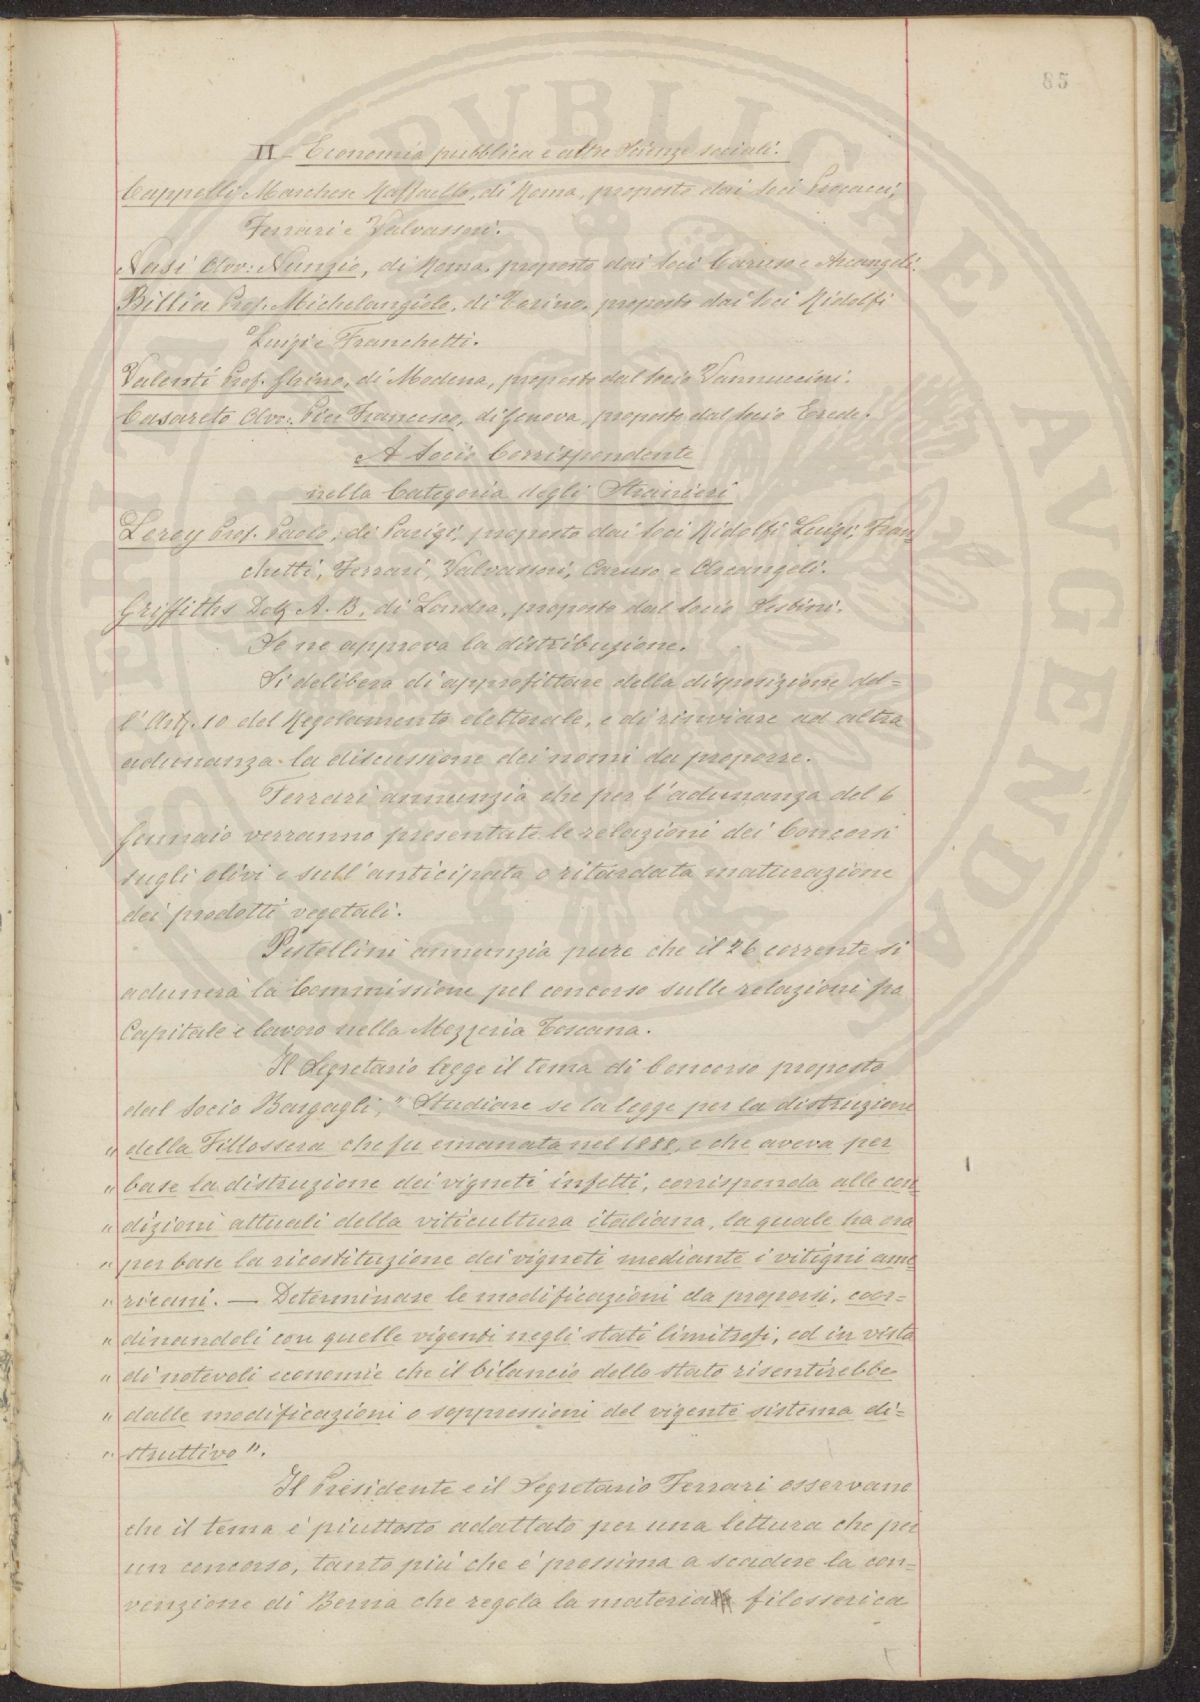 85
II - Economia pubblica e altre Scienze sociali.
Cappelli Marchese Raffaello, di Roma, proposto dai Soci Procacci,
Ferrari e Valvassori.
Nasi Avv: Nunzio, di Roma, proposto dai Soci Caruso e Arcangeli.
Billia Prof. Michelangiolo, di Torino, proposto dai Soci Ridolfi
Luigi e Franchetti.
Valenti Prof. Ghino, di Modena, proposto dal Socio Vannuccini.
Casareto Avv: Pier Francesco, di Genova, proposto dal Socio Erede.
A Socio Corrispondente
nella Categoria degli Stranieri
Leroy Prof. Paolo, di Parigi, proposto dai Soci Ridolfi Luigi, Fran-
chetti, Ferrari, Valvassori, Caruso e Arcangeli.
Griffiths Dott. A. B. di Londra, proposto dal Socio Sestini.
Se ne approva la distribuzione.
Si delibera di approfittare della disposizione del=
l'Art. 10 del Regolamento elettorale, e di rinviare ad altra
adunanza la discussione dei nomi da proporre.
Ferrari annunzia che per l'adunanza del 6
Gennaio verranno presentate le relazioni dei Concorsi
sugli olivi e sull'anticipata o ritardata maturazione
dei prodotti vegetali.
Pestellini annunzia pure che il 26 corrente si
adunerà la Commissione pel concorso sulle relazioni fra
Capitale e lavoro nella Mezzeria Toscana.
Il Segretario legge il tema di Concorso proposto
dal Socio Bargagli, " Studiare se la legge per la distruzione
" della Fillossera che fu emanata nel 1888, e che aveva per
" base la distruzione dei vigneti infetti, corrisponda alle con-
" dizioni attuali della viticultura italiana, la quale ha ora
" per base la ricostituzione dei vigneti mediante i vitigni ame-
" ricani. — Determinare le modificazioni da proporsi, coor=
" dinandoli con quelle vigenti negli stati limitrofi, ed in vista
" di notevoli economie che il bilancio dello stato risentirebbe
" dalle modificazioni o soppressioni del vigente sistema di=
" struttivo ".
Il Presidente e il Segretario Ferrari osservano
che il tema è piuttosto adattato per una lettura che per
un concorso, tanto più che è prossima a scadere la con=
venzione di Berna che regola la materia filosserica
PUBLICAE
AUGENDAE